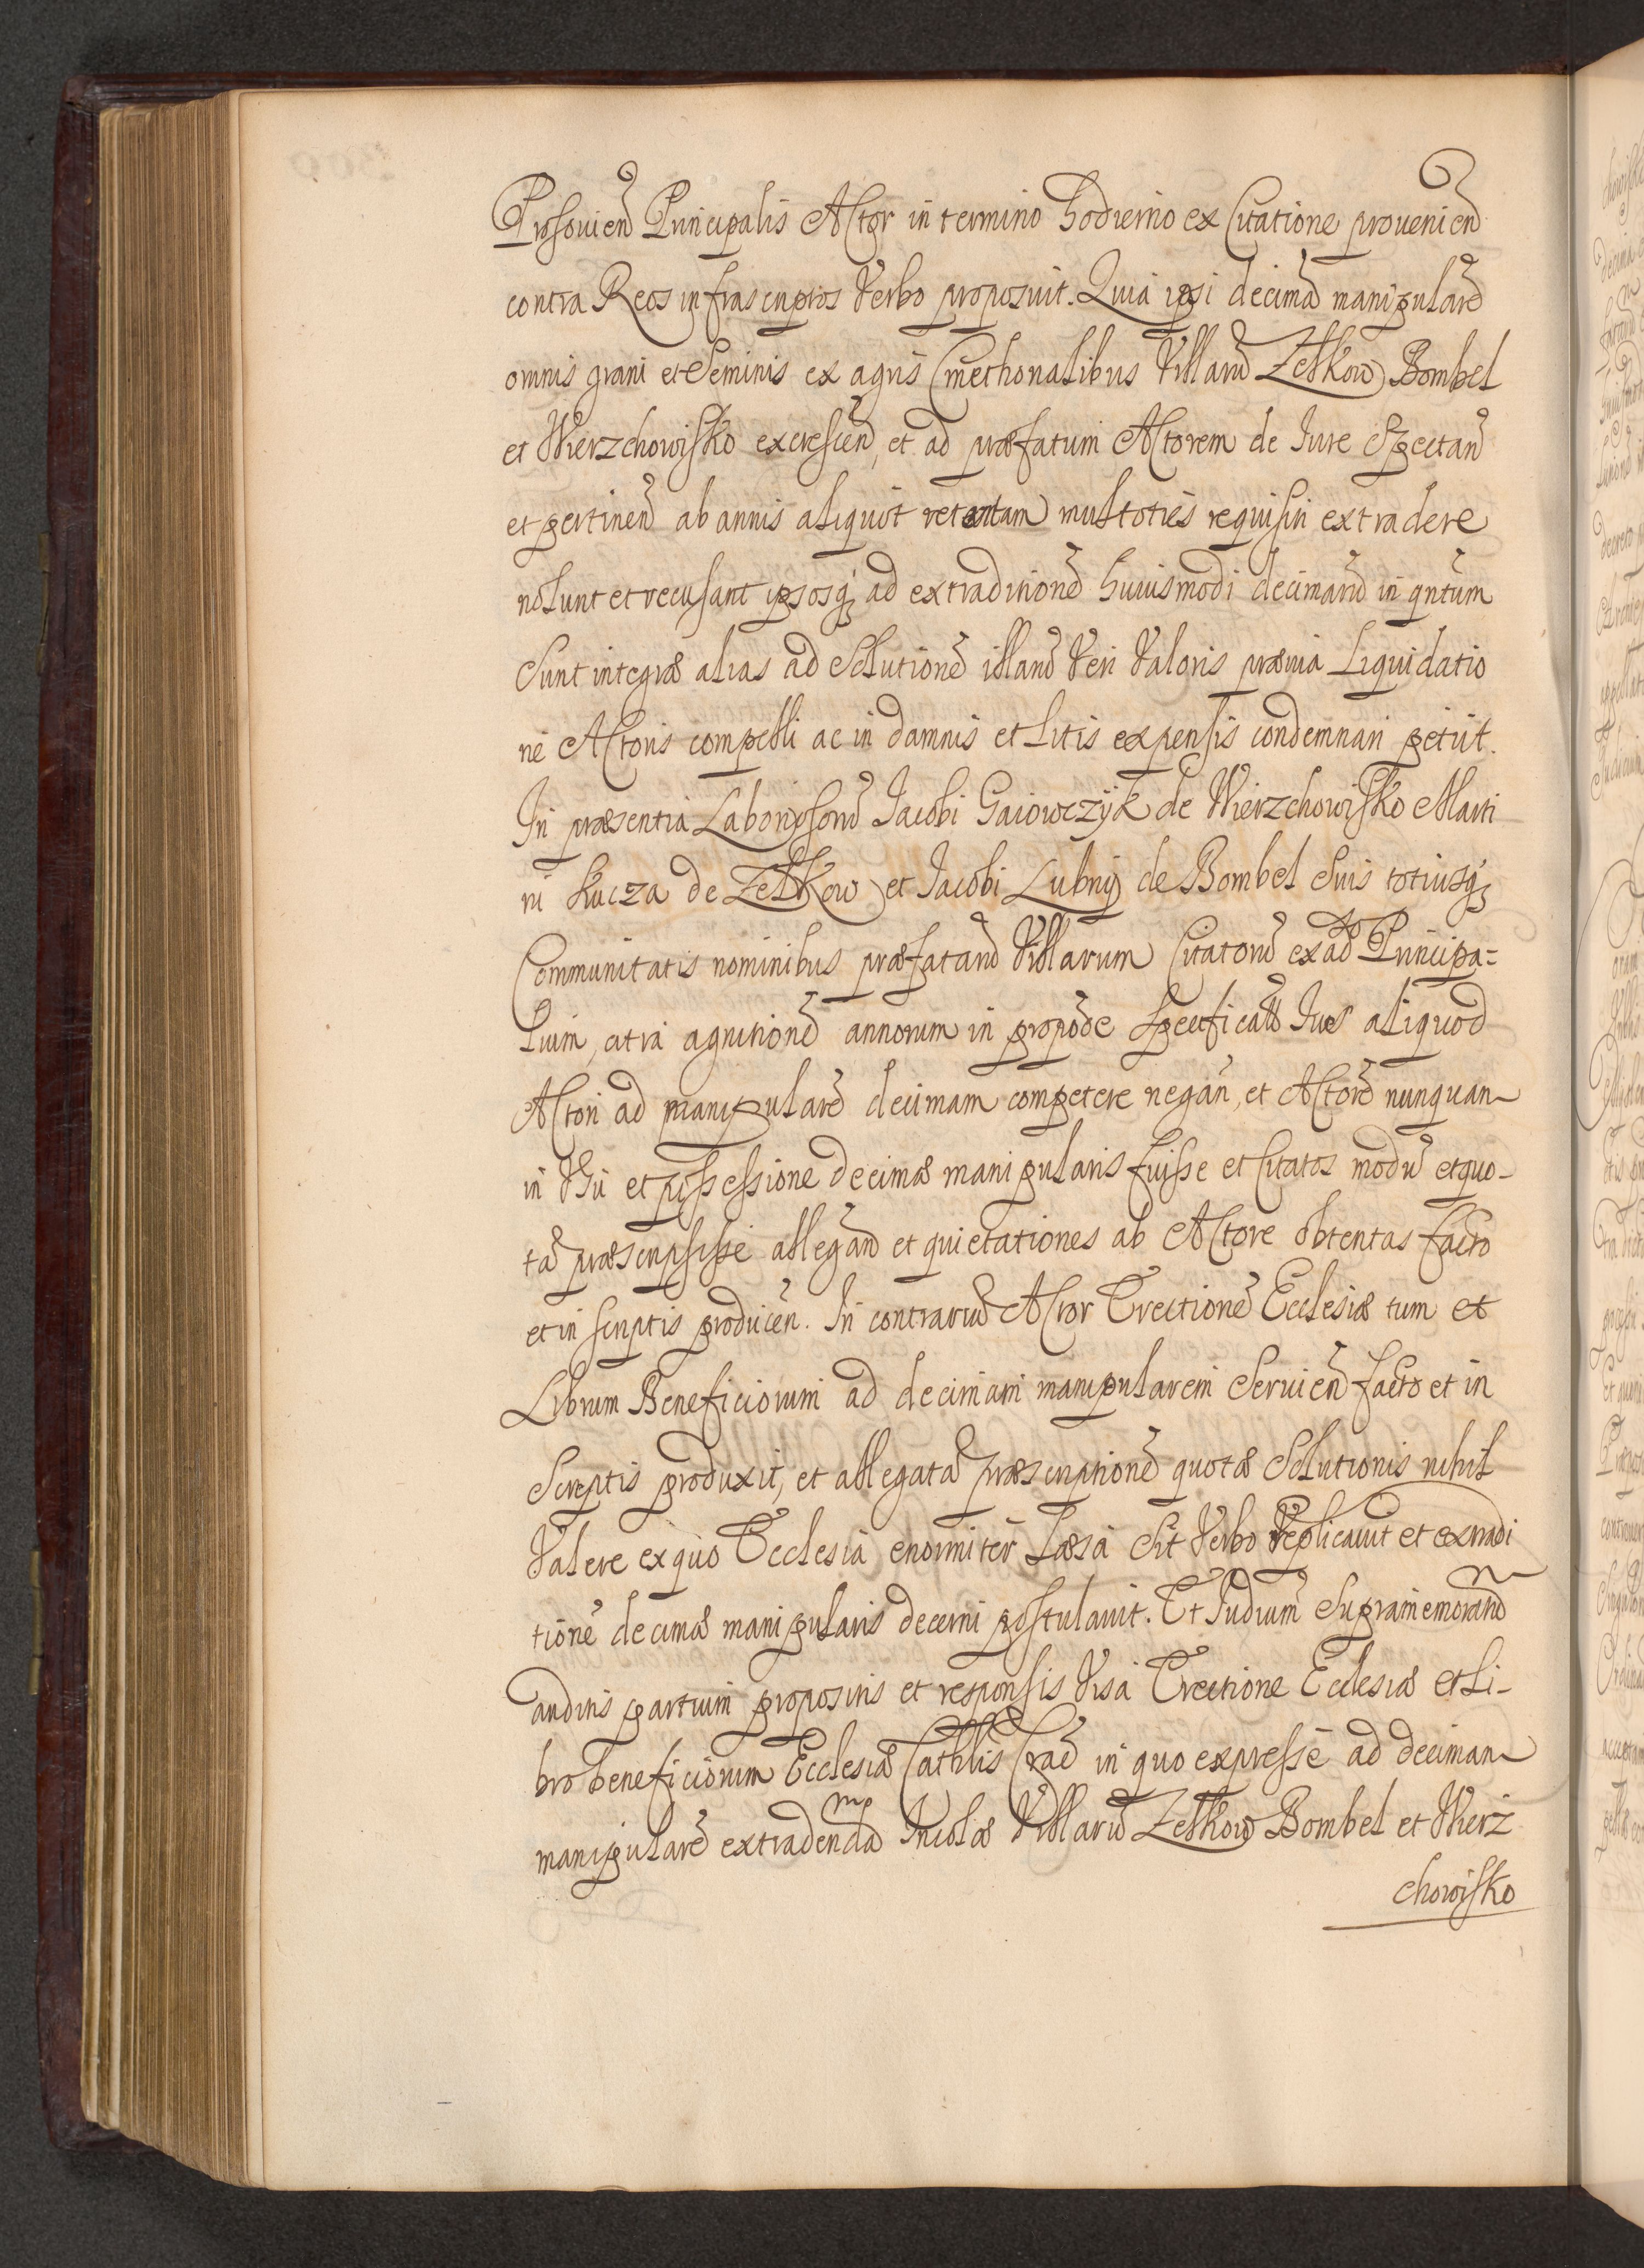 Prosouien̄ Principalis Actor in termino hodierno ex Citatione prouenien̄
contra Reos infrascriptos Verbo proposuit. Quia ipsi decimā manipularē
omnis grani et Seminis ex agris Cmethonalibus Villarū Zelkow Bombel
et Wierzchowisko excrescen̄, et ad præfatum Actorem de Iure Spectan̄
et pertinen̄ ab annis aliquot retentam multoties requisiti extradere
nolunt et recusant ipsosq; ad extraditionē huiusmodi decimarū in qntum
Sunt integræ alias ad Solutionē illarū Veri Valoris præuia Liquidatio
ne Actoris compelli ac in damnis et Litis expensis condemnari petiit.
In præsentia Laboriosorū Iacobi Gaiowczyk de Wierzchowisko Marti
ni Kucza de Zelkow et Iacobi Lubny de Bombel Suis totiusq;
Communitatis nominibus præfatarū Villarum Citatorū ex ad Principa=
lium, citra agnitionē annorum in propōne Specificatō Ius aliquod
Actori ad manipularē decimam competere negan̄, et Actorē nunquam
in Vsu et possessione decimæ manipularis fuisse et Citatos modū et quo-
tā præscripsisse allegan̄ et quietationes ab Actore obtentas facto
et in scriptis producen̄. In contrariū Actor Erectionē Ecclesiæ tum et
Librum Beneficiorum ad decimam manipularem Seruien̄ facto et in
Scriptis produxit, et allegatā præscriptionē quotæ Solutionis nihil
Valere ex quo Ecclesia enormiter Læsa Sit Verbo Replicauit et extradi
tionē decimæ manipularis decerni postulauit. Et Iudicium Supramemoratū
auditis partium propositis et responsis Visa Erectione Ecclesiæ et Li-
bro beneficiorum Ecclesiæ Cathlis Crac̄ in quo expresse ad decimam
manipularē extradendā Incolæ Villarū Zelkow Bombel et Wierz
chowisko